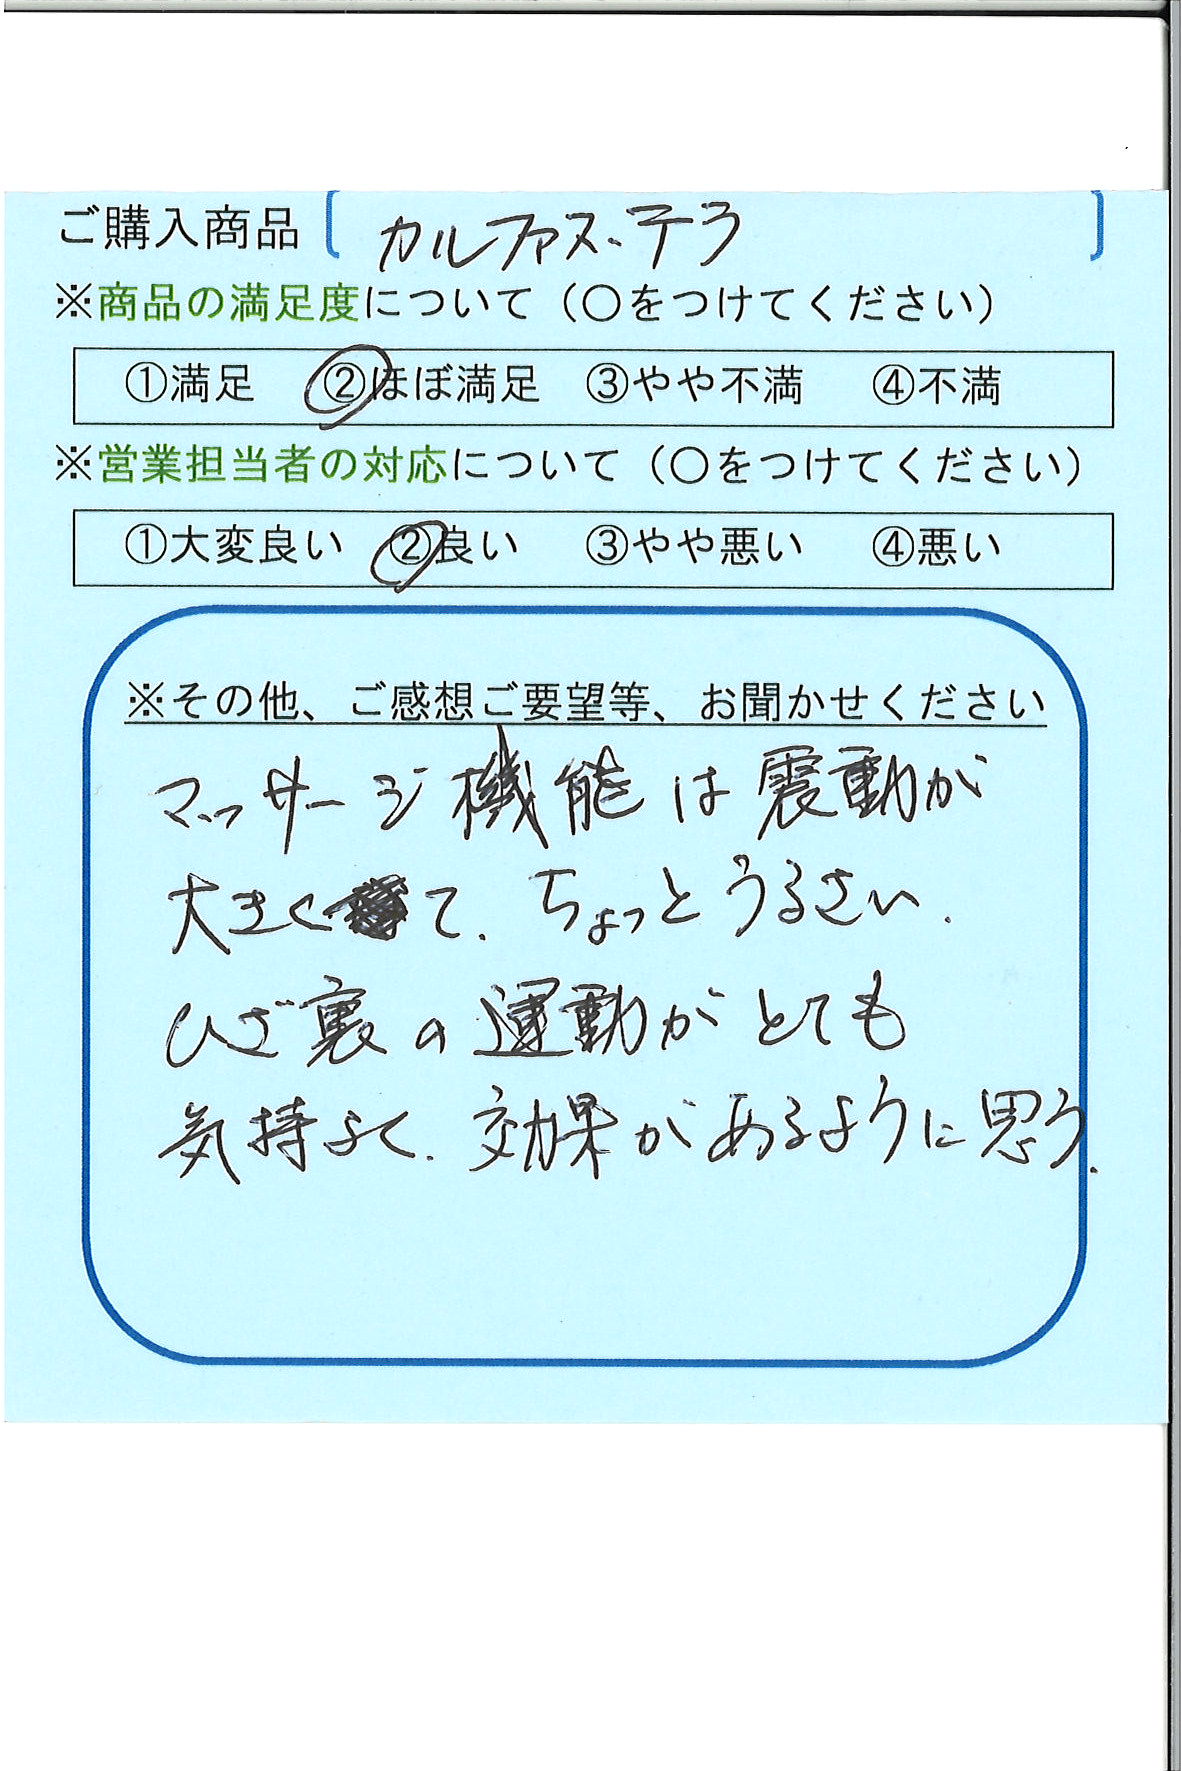 ご購入商品 [カルファス・テラ]
※商品の満足度について（○をつけてください）
①満足 ②ほぼ満足 ③やや不満 ④不満
※営業担当者の対応について（○をつけてください）
①大変良い ②良い ③やや悪い ④悪い
※その他、ご感想ご要望等、お聞かせください
マッサージ機能は震動が
大きくて、ちょっとうるさい。
ひざ裏の運動がとても
気持よく、効果があるように思う。